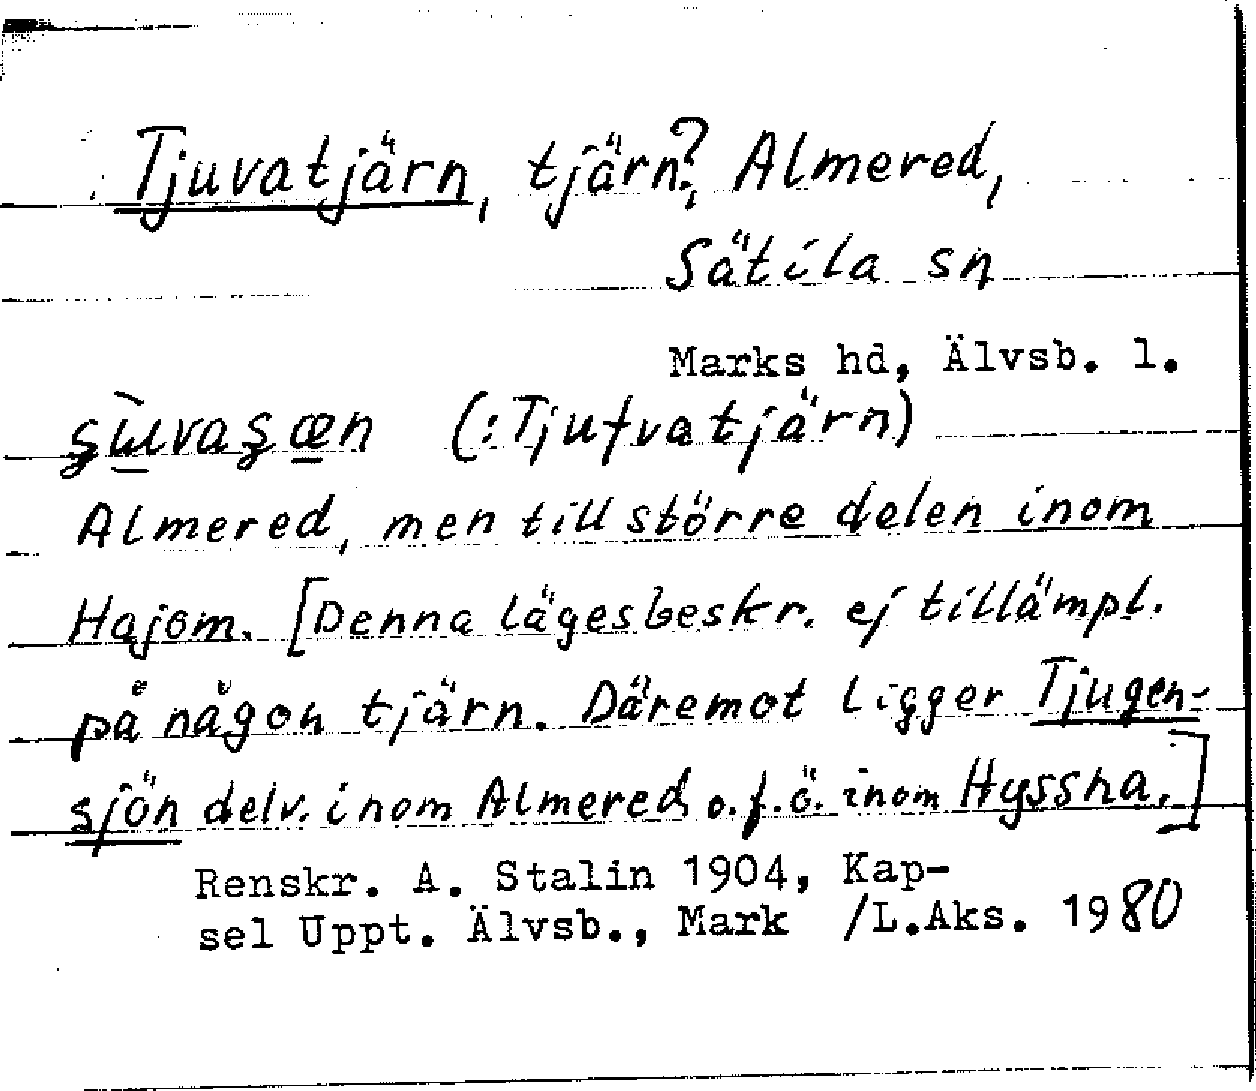 Tjuvatjärn, tjärn?, Almered,
Sätila sn
Marks hd, Älvsb. l.
(: Tjufvatjärn)
Almered, men till större delen inom
Hajom. [Denna lägesbeskr. ej tillämpl.
på någon tjärn. Däremot ligger Tjugen-
sjön delv. inom Almered o.f.ö. inom Hyssna.]
Renskr. A. Stalin 1904, Kap-
sel Uppt. Älvsb., Mark /L.Aks. 1980